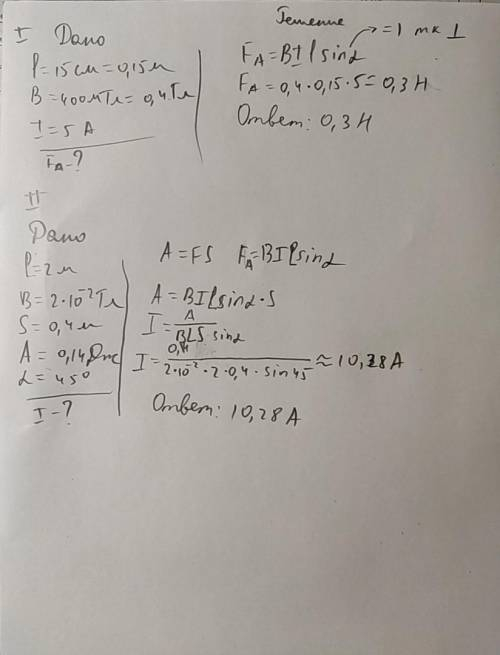 I Дано
l = 15 см = 0,15 м
B = 400 мТл = 0,4 Тл
I = 5 А
Fа - ?
Решение
Fа = BIl sinα → = 1 т к ⊥
Fа = 0,4 · 0,15 · 5 = 0,3 Н
Ответ: 0,3 Н
II
Дано
l = 2 м
B = 2·10⁻² Тл
S = 0,4 м
A = 0,14 Дж
α = 45°
I - ?
A = FS Fа = BIl sinα
A = BIl sinα · S
I = A / BLS sinα
I = / 2·10⁻² · 2 · 0,4 · sin 45 ≈ 10,28 А
Ответ: 10,28 А